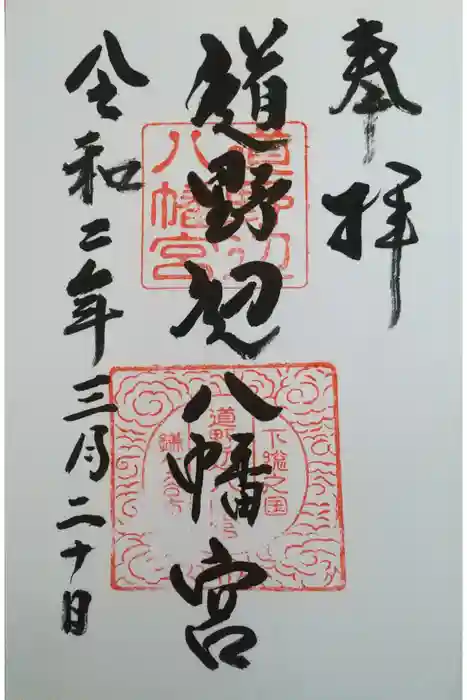 奉拝
道野辺八幡宮
令和二年三月二十日
道野辺
八幡宮
下総之国